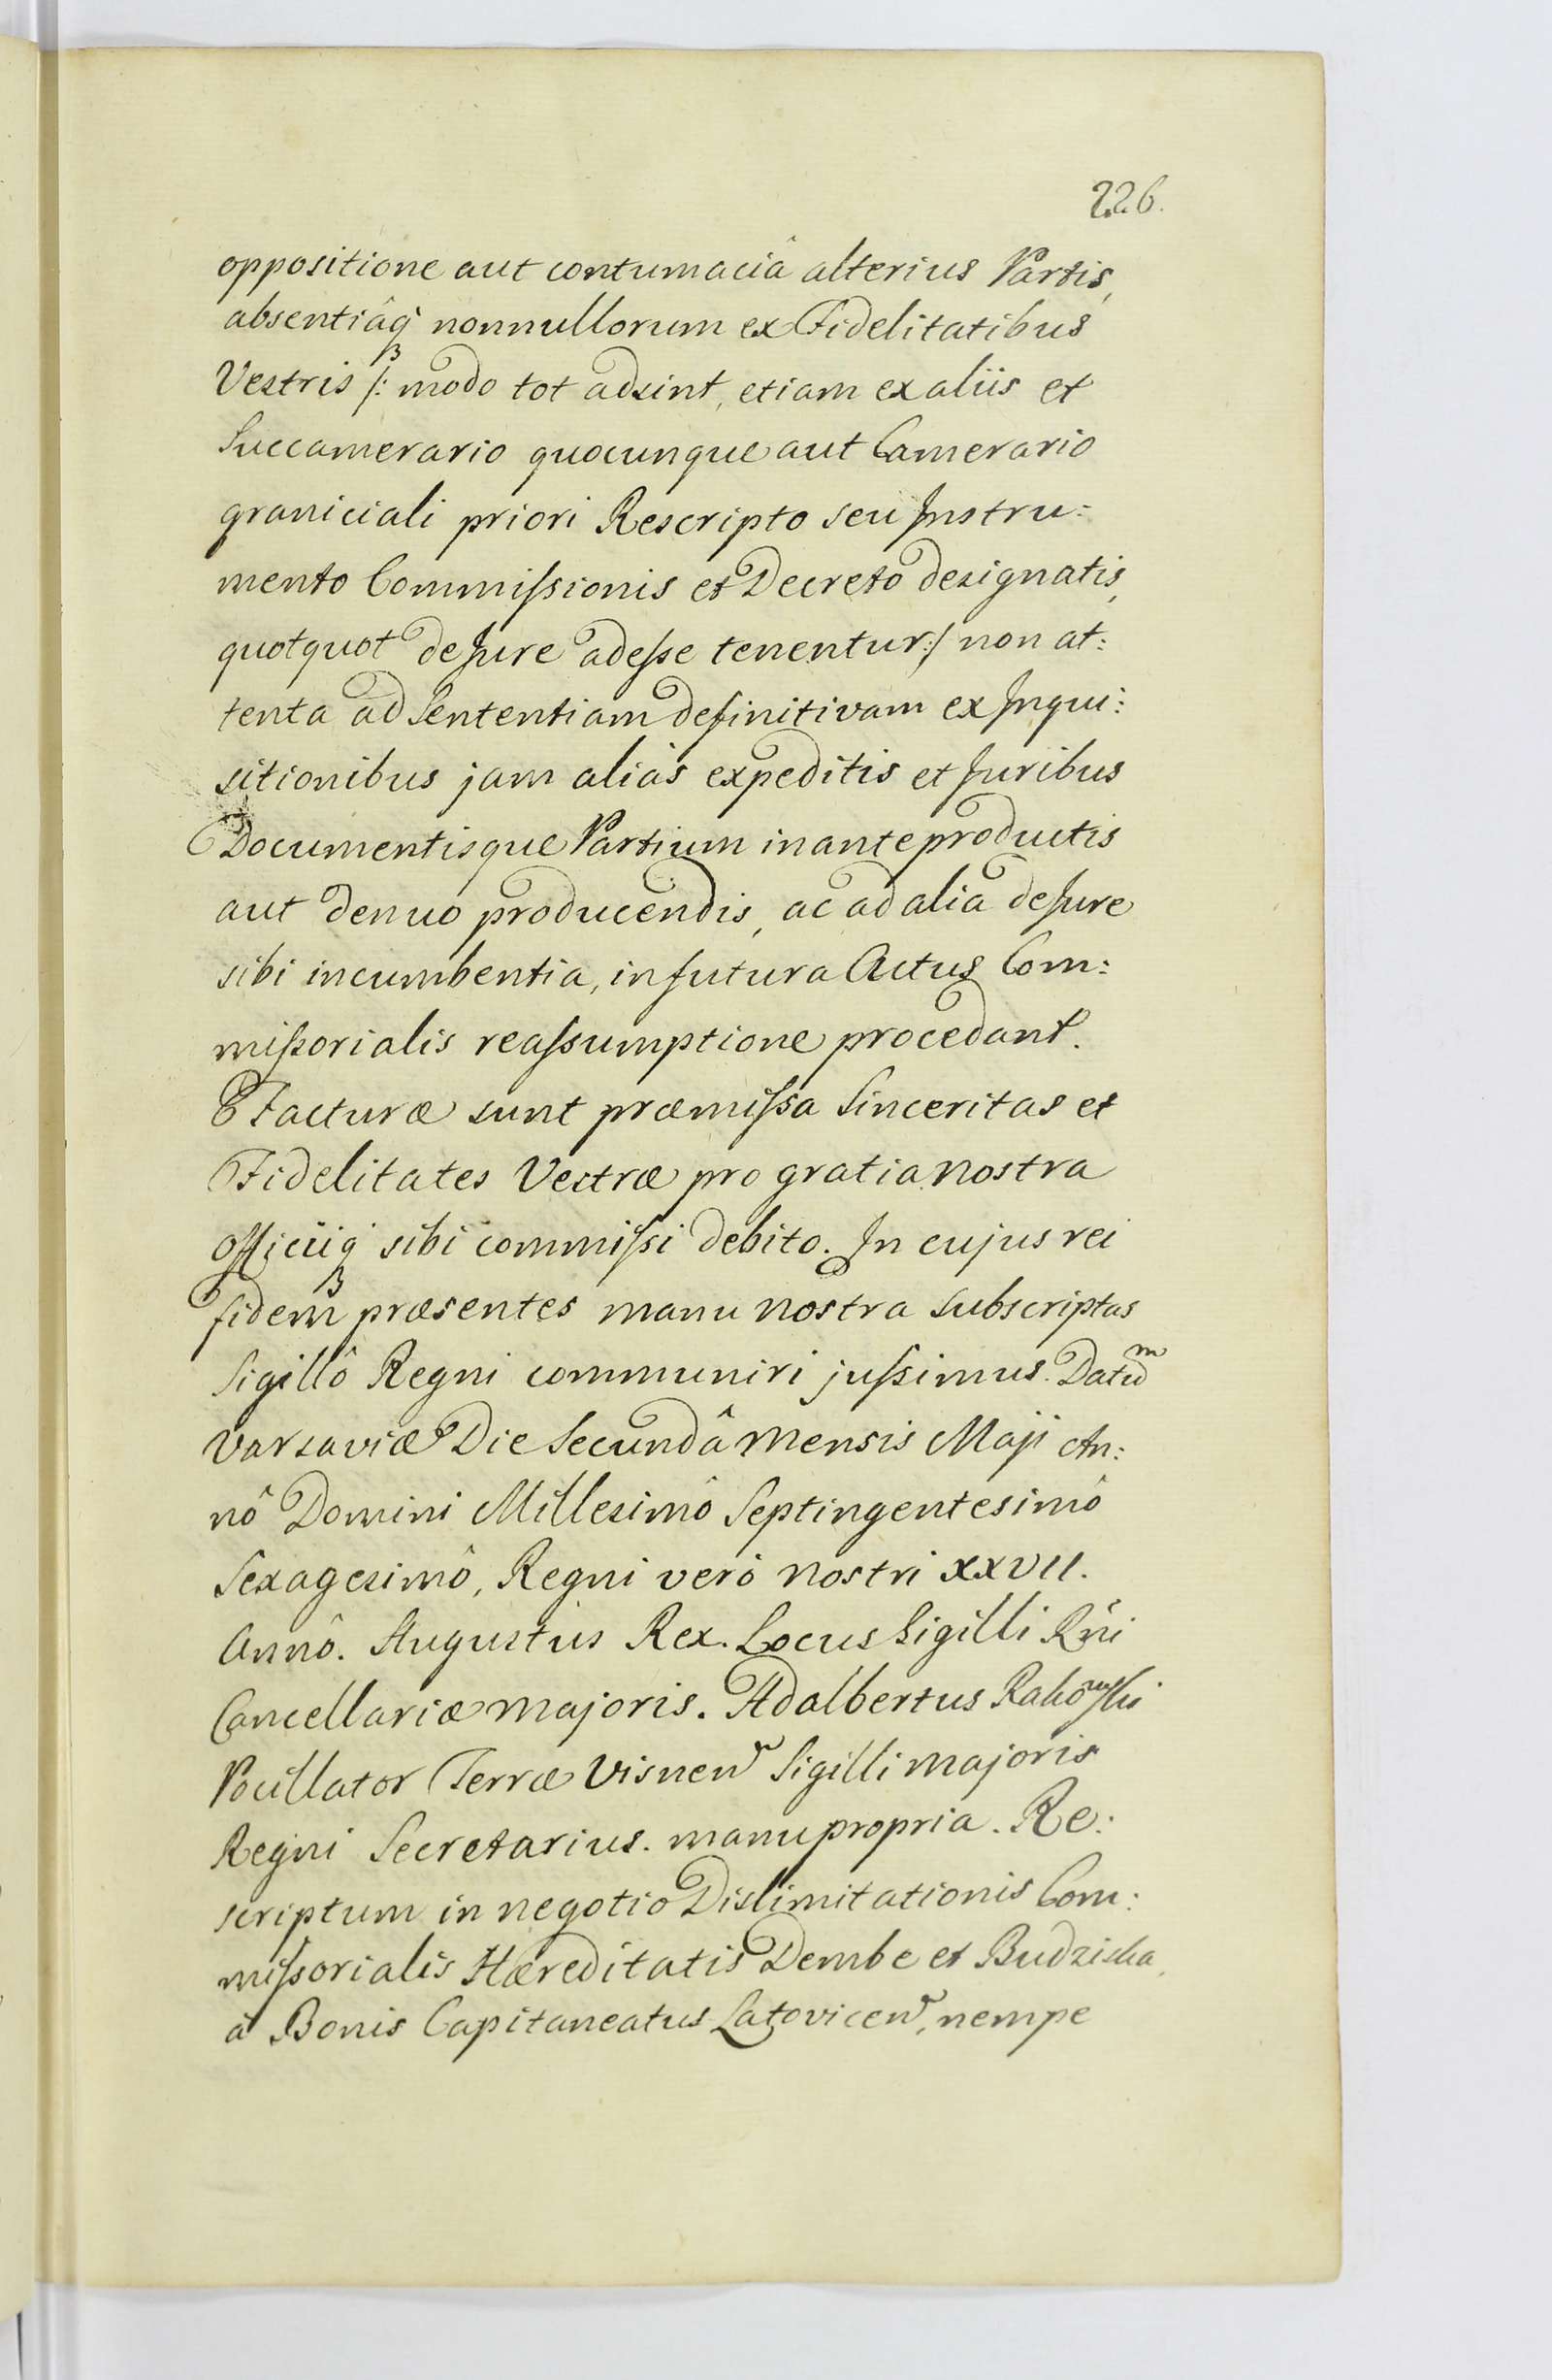 226.
oppositione aut contumaciâ alterius Partis,
absentiâq; nonnullorum ex Fidelitatibus
Vestris /: modo tot adsint, etiam ex aliis et
Succamerario quocunque aut Camerario
graniciali priori Rescripto seu Instru:
mento Commiſsionis et Decreto designatis,
quotquot de Jure adeſse tenentur :/ non at:
tenta ad Sententiam definitivam ex Inqui:
sitionibus jam aliàs expeditis et Juribus
Documentisque Partium in ante productis
aut denuo producendis, ac ad alia de Jure
sibi incumbentia, in futura Actus Com:
miſsorialis reaſsumptione procedant.
Facturæ sunt præmiſsa Sinceritas et
Fidelitates Vestræ pro gratia nostra
officiiq; sibi commiſsi debito. In cujus rei
fidem præsentes manu nostra subscriptas
Sigillô Regni communiri juſsimus. Datũm
Varsaviæ Die Secundâ Mensis Maji An:
nô Domini Millesimô Septingentesimô
Sexagesimô, Regni verò nostri XXVII.
Annô. Augustus Rex. Locus Sigilli Rñi
Cancellariæ Majoris. Adalbertus Rakowſki
Pocillator Terræ Visnen Sigilli Majoris
Regni Secretarius. manu propria. Re:
scriptum in negotio Dislimitationis Com:
miſsorialis Hæreditatis Dembe et Budziska,
à Bonis Capitaneatus Latovicen, nempe